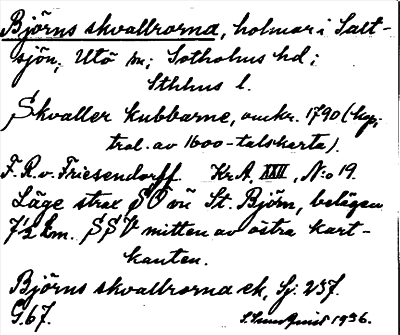 Björns skvallrorna, holmar i Salt-
sjön; Utö sn; Sotholms hd;
Sthlms l.
Skvaller kubbarne, omkr. 1790 (kop;
trol. av 1600-talskarta).
F. R. v. Friesendorff. Kr. A. XXII, N:o 19.
Läge strax SO om St. Björn, belägen
7½ km. SSV mitten av östra kart-
kanten.
Björns skvallrorna ek, Sj. 237.
G. 67. 1936.